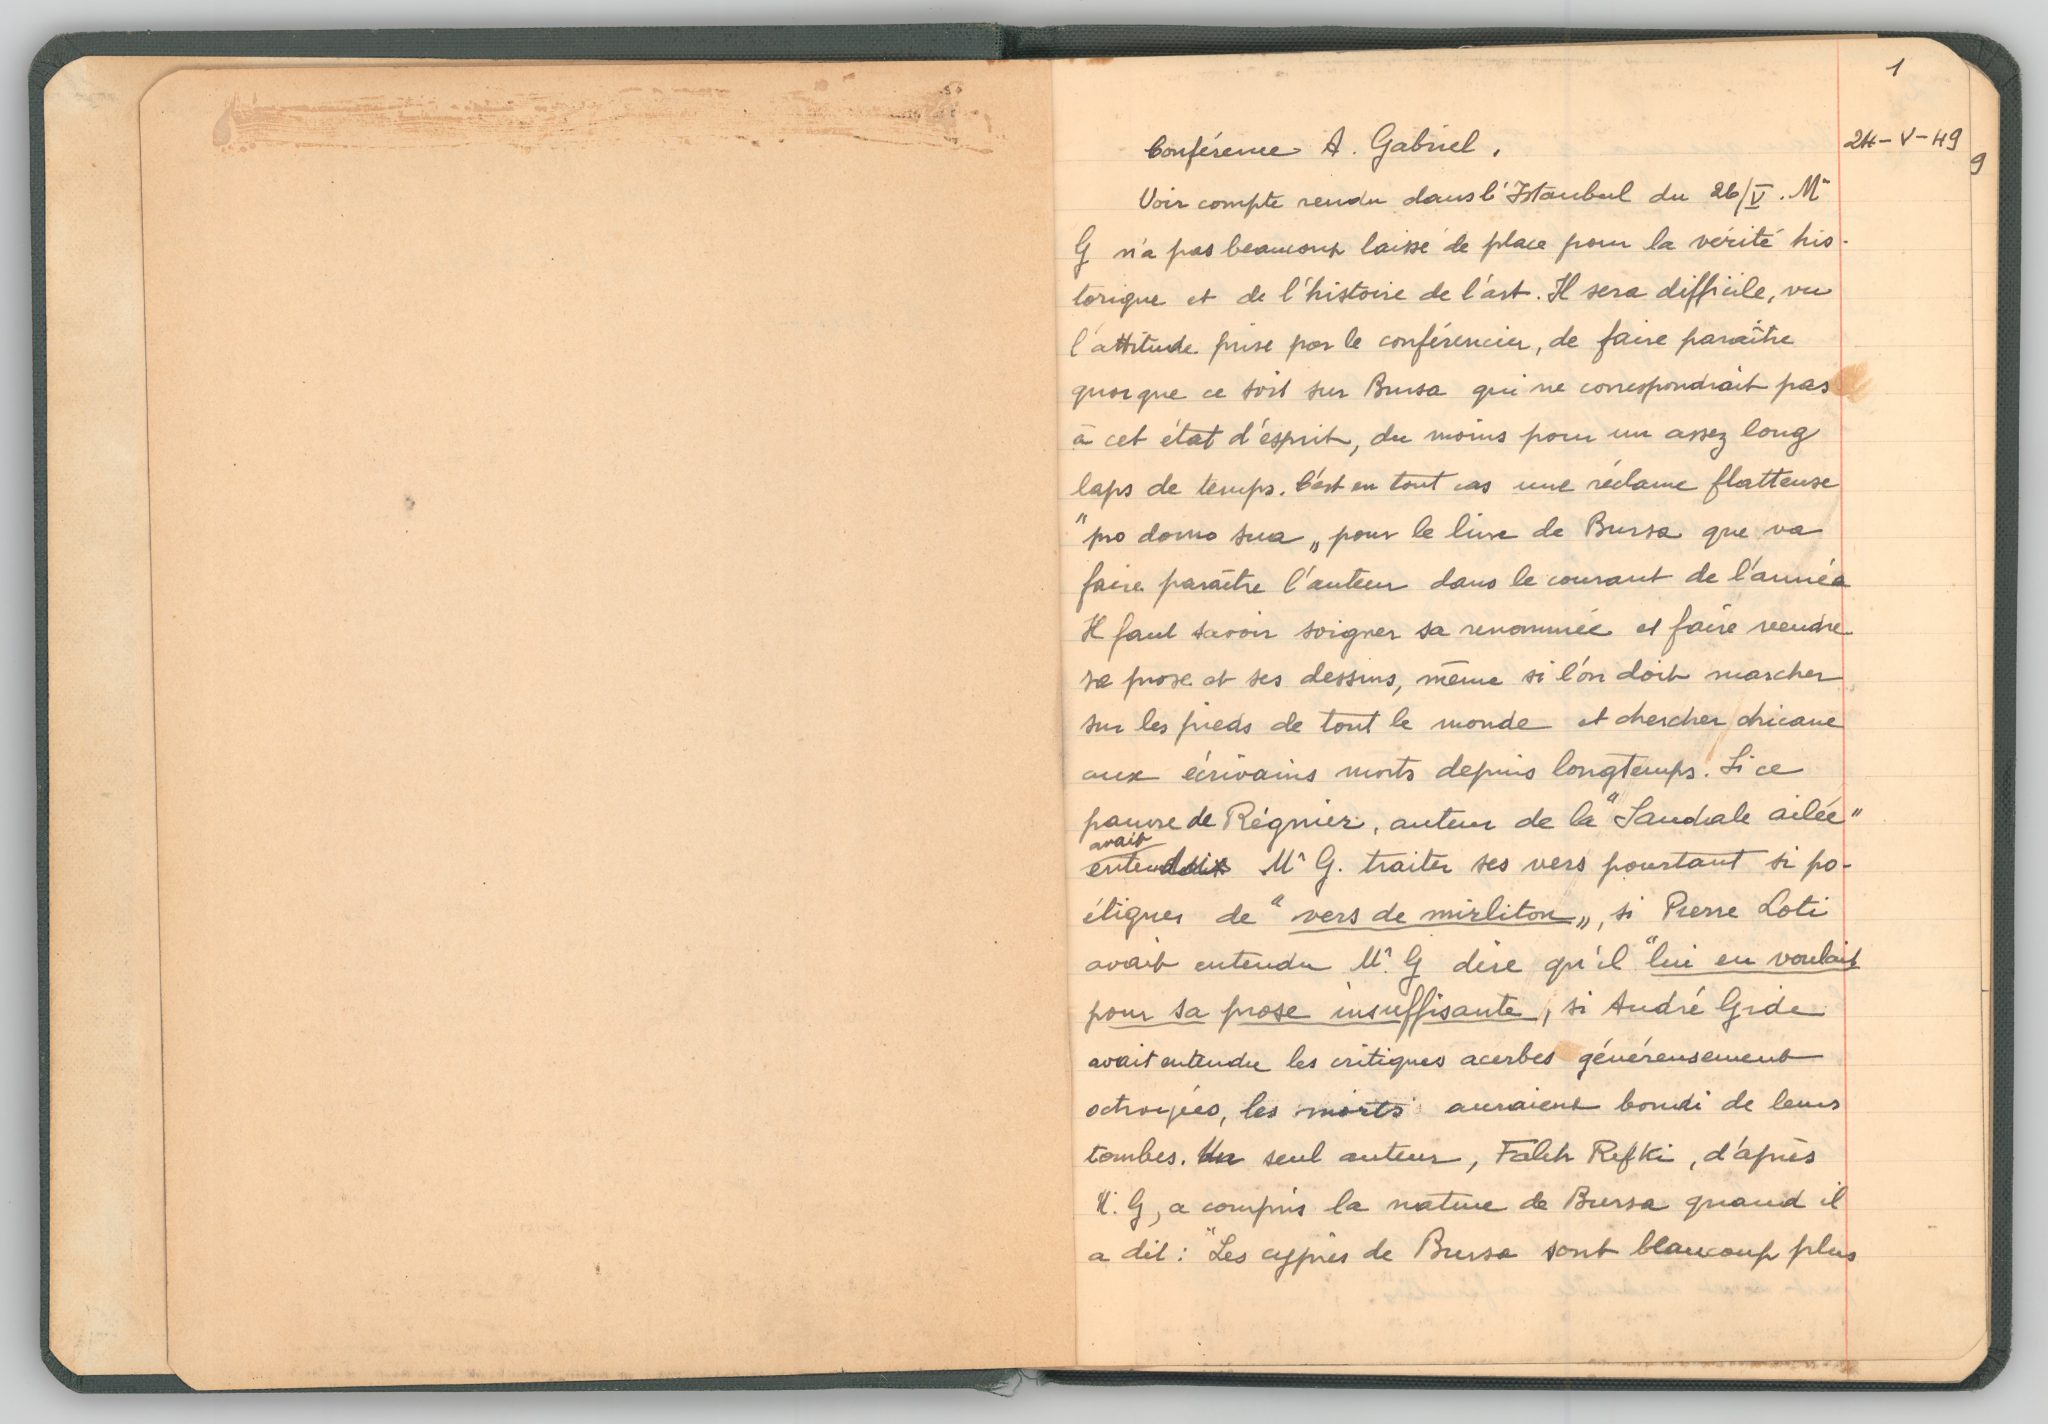 1
24-V-49
Conférence A. Gabriel.
Voir compte rendu dans l'Istanbul du 26/V. Mr
G n'a pas beaucoup laissé de place pour la vérité his-
torique et de l'histoire de l'art. Il sera difficile, vu
l'attitude prise par le conférencier, de faire paraître
quoique ce soit sur Bursa qui ne correspondrait pas
à cet état d'esprit, du moins pour un assez long
laps de temps. C'est en tout cas une réclame flatteuse
"pro domo sua" pour le livre de Bursa que va
faire paraître l'auteur dans le courant de l'année
Il faut savoir soigner sa renommée et faire vendre
sa prose et ses dessins, même si l'on doit marcher
sur les pieds de tout le monde et chercher chicane
aux écrivains morts depuis longtemps. Si ce
pauvre de Régnier, auteur de la "Sandale ailée"
avait
entendu Mr G. traiter ses vers pourtant si po-
étiques de "vers de mirliton", si Pierre Loti
avait entendu Mr. G dire qu'il "lui en voulait
pour sa prose insuffisante, si André Gide
avait entendu les critiques acerbes généreusement
octroyées, les morts auraient bondi de leurs
tombes. Un seul auteur, Falih Refki, d'après
M. G, a compris la nature de Bursa quand il
a dit : "Les cyprès de Bursa sont beaucoup plus